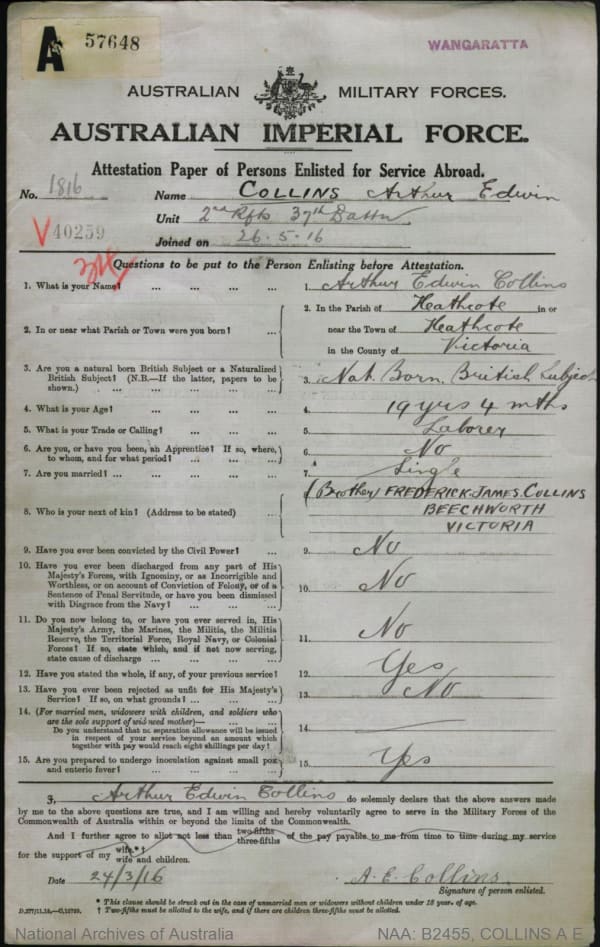 A 57648
WANGARATTA
AUSTRALIAN MILITARY FORCES.
AUSTRALIAN IMPERIAL FORCE.
Attestation Paper of Persons Enlisted for Service Abroad.
No. 1816 Name COLLINS Arthur Edwin
Unit 2nd Rfts 37th Battn
V40259 Joined on 26.5.16
Questions to be put to the Person Enlisting before Attestation.
1. What is your Name? ... ... ... ... 1. Arthur Edwin Collins
2. In or near what Parish or Town were you born? ... 2. In the Parish of Heathcote in or
near the Town of Heathcote
in the County of Victoria
3. Are you a natural born British Subject or a Naturalized
British Subject? (N.B.—If the latter, papers to be
shown.) ... ... ... ... 3. Nat. Born British Subject
4. What is your Age? ... ... ... ... 4. 19 yrs 4 mths
5. What is your Trade or Calling? ... ... ... 5. Laborer
6. Are you, or have you been, an Apprentice? If so, where,
to whom, and for what period? ... ... ... 6. No
7. Are you married? ... ... ... ... ... 7. Single
(Brother) FREDERICK JAMES COLLINS
8. Who is your next of kin? (Address to be stated) ... 8. BEECHWORTH
VICTORIA
9. Have you ever been convicted by the Civil Power? ... 9. No
10. Have you ever been discharged from any part of His
Majesty's Forces, with Ignominy, or as Incorrigible and
Worthless, or on account of Conviction of Felony, or of a
Sentence of Penal Servitude, or have you been dismissed
with Disgrace from the Navy? ... ... ... 10. No
11. Do you now belong to, or have you ever served in, His
Majesty's Army, the Marines, the Militia, the Militia
Reserve, the Territorial Force, Royal Navy, or Colonial
Forces? If so, state which, and if not now serving,
state cause of discharge ... ... ... 11. No
12. Have you stated the whole, if any, of your previous service? 12. Yes
13. Have you ever been rejected as unfit for His Majesty's
Service? If so, on what grounds? ... ... ... 13. No
14. (For married men, widowers with children, and soldiers who
are the sole support of widowed mother)— ... ...
Do you understand that no separation allowance will be issued
in respect of your service beyond an amount which
together with pay would reach eight shillings per day? 14. —
15. Are you prepared to undergo inoculation against small pox
and enteric fever? ... ... ... ... 15. Yes
I, Arthur Edwin Collins do solemnly declare that the above answers made
by me to the above questions are true, and I am willing and hereby voluntarily agree to serve in the Military Forces of the
Commonwealth of Australia within or beyond the limits of the Commonwealth.
And I further agree to allot not less than two-fifths three-fifths of the pay payable to me from time to time during my service
for the support of my wife.*†
wife and children.
Date 24/3/16 A. E. Collins.
Signature of person enlisted.
* This clause should be struck out in the case of unmarried men or widowers without children under 18 years of age.
† Two-fifths must be allotted to the wife, and if there are children three-fifths must be allotted.
National Archives of Australia NAA: B2455, COLLINS A E